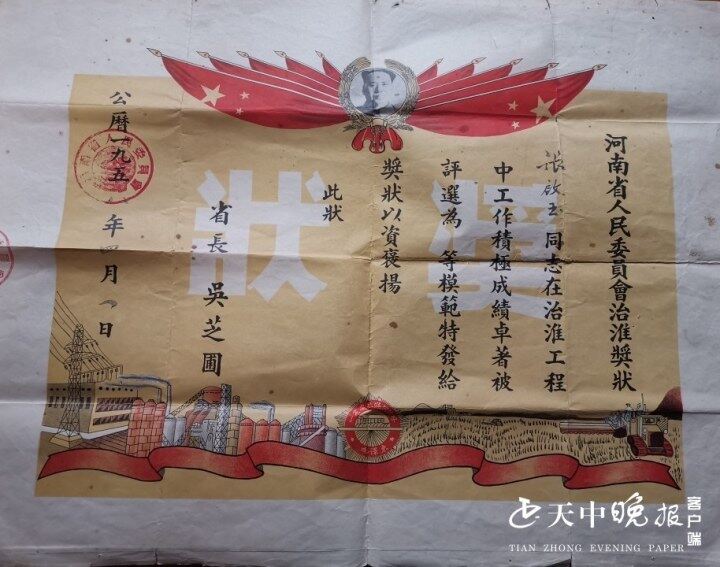 河南省人民委員會治淮獎狀
張啟玉同志在治淮工程
中工作積極成績卓著被
評選為 等模範特發給
獎狀以資褒揚
此狀
省長 吳芝圃
公曆一九五 年四月 日
獎狀
天中晚报 客户端
TIAN ZHONG EVENING PAPER